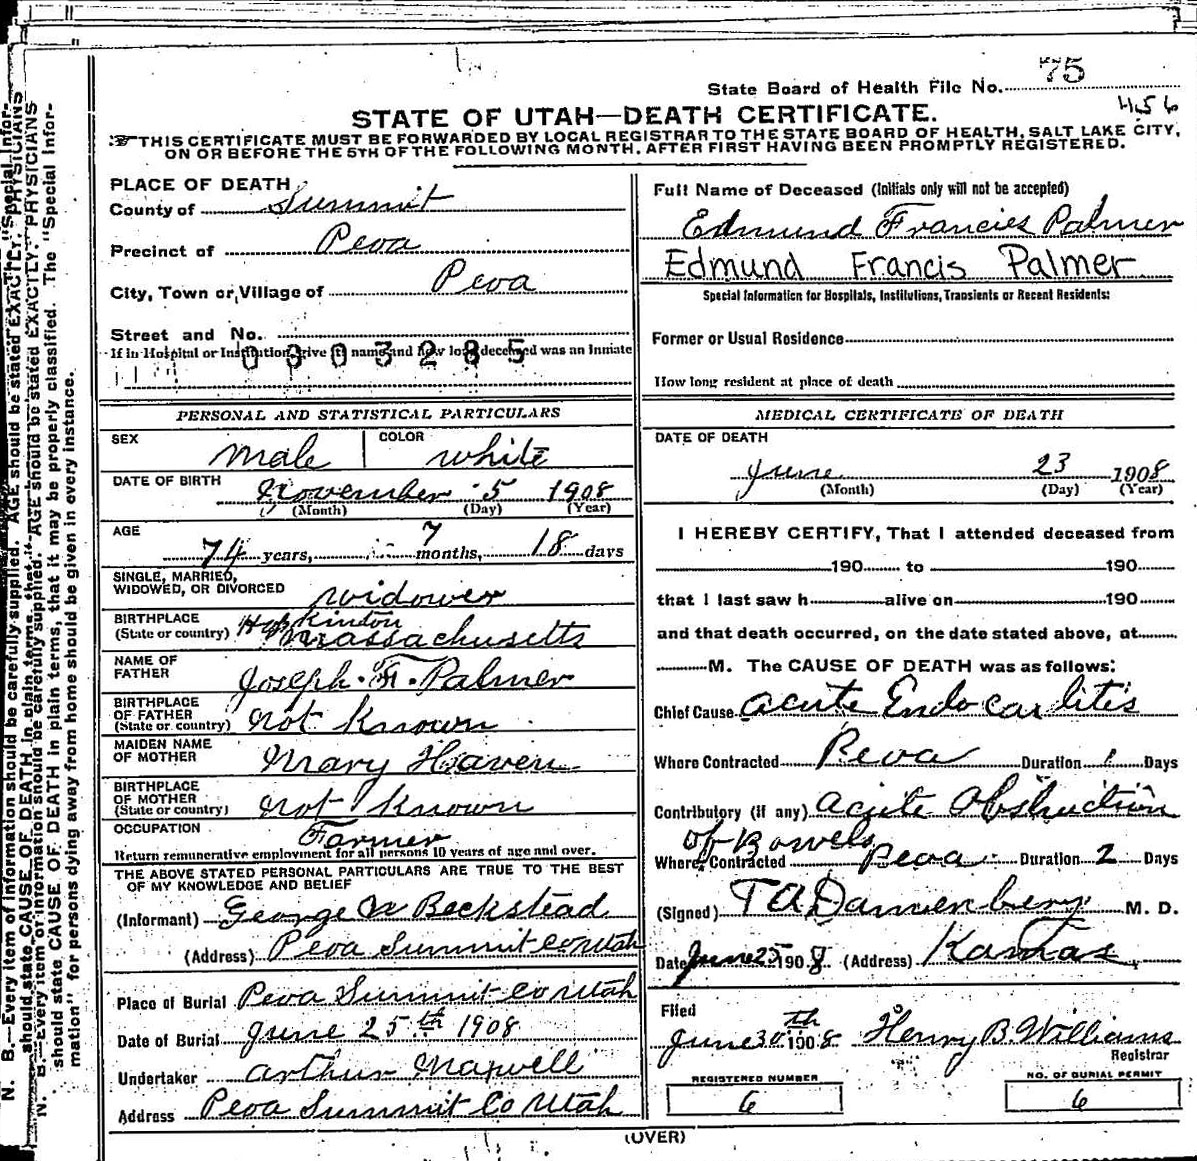 75
State Board of Health File No.
456
STATE OF UTAH—DEATH CERTIFICATE.
THIS CERTIFICATE MUST BE FORWARDED BY LOCAL REGISTRAR TO THE STATE BOARD OF HEALTH, SALT LAKE CITY,
ON OR BEFORE THE 5TH OF THE FOLLOWING MONTH, AFTER FIRST HAVING BEEN PROMPTLY REGISTERED.
PLACE OF DEATH
County of Summit
Precinct of Peoa
City, Town or Village of Peoa
Street and No.
If in Hospital or Institution, give its name and how long deceased was an Inmate
0303285
Full Name of Deceased (Initials only will not be accepted)
Edmund Francies Palmer
Edmund Francis Palmer
Special Information for Hospitals, Institutions, Transients or Recent Residents:
Former or Usual Residence
How long resident at place of death
PERSONAL AND STATISTICAL PARTICULARS
SEX male COLOR white
DATE OF BIRTH November 5 1908
(Month) (Day) (Year)
AGE 74 years, 7 months, 18 days
SINGLE, MARRIED,
WIDOWED, OR DIVORCED widower
BIRTHPLACE Hopkinton
(State or country) Massachusetts
NAME OF
FATHER Joseph F. Palmer
BIRTHPLACE
OF FATHER
(State or country) not Known
MAIDEN NAME
OF MOTHER Mary Haven
BIRTHPLACE
OF MOTHER
(State or country) not Known
OCCUPATION Farmer
Return remunerative employment for all persons 10 years of age and over.
THE ABOVE STATED PERSONAL PARTICULARS ARE TRUE TO THE BEST
OF MY KNOWLEDGE AND BELIEF
(Informant) George W Beckstead
(Address) Peoa Summit Co Utah
Place of Burial Peoa Summit Co Utah
Date of Burial June 25th 1908
Undertaker Arthur Maxwell
Address Peoa Summit Co Utah
MEDICAL CERTIFICATE OF DEATH
DATE OF DEATH
June 23 1908
(Month) (Day) (Year)
I HEREBY CERTIFY, That I attended deceased from
190 to 190
that I last saw h alive on 190
and that death occurred, on the date stated above, at
M. The CAUSE OF DEATH was as follows:
Chief Cause acute Endocarditis
Where Contracted Peoa Duration 1 Days
Contributory (if any) acute Obstruction
of Bowels
Where Contracted Peoa Duration 2 Days
(Signed) T A Dannenberg M. D.
Date June 25 1908 (Address) Kamas
Filed
June 30th 1908 Henry B. Williams
Registrar
REGISTERED NUMBER
6
NO. OF BURIAL PERMIT
6
(OVER)
N. B.—Every item of information should be carefully supplied. AGE should be stated EXACTLY. PHYSICIANS
should state CAUSE OF DEATH in plain terms, that it may be properly classified. The "Special Infor-
mation" for persons dying away from home should be given in every instance.